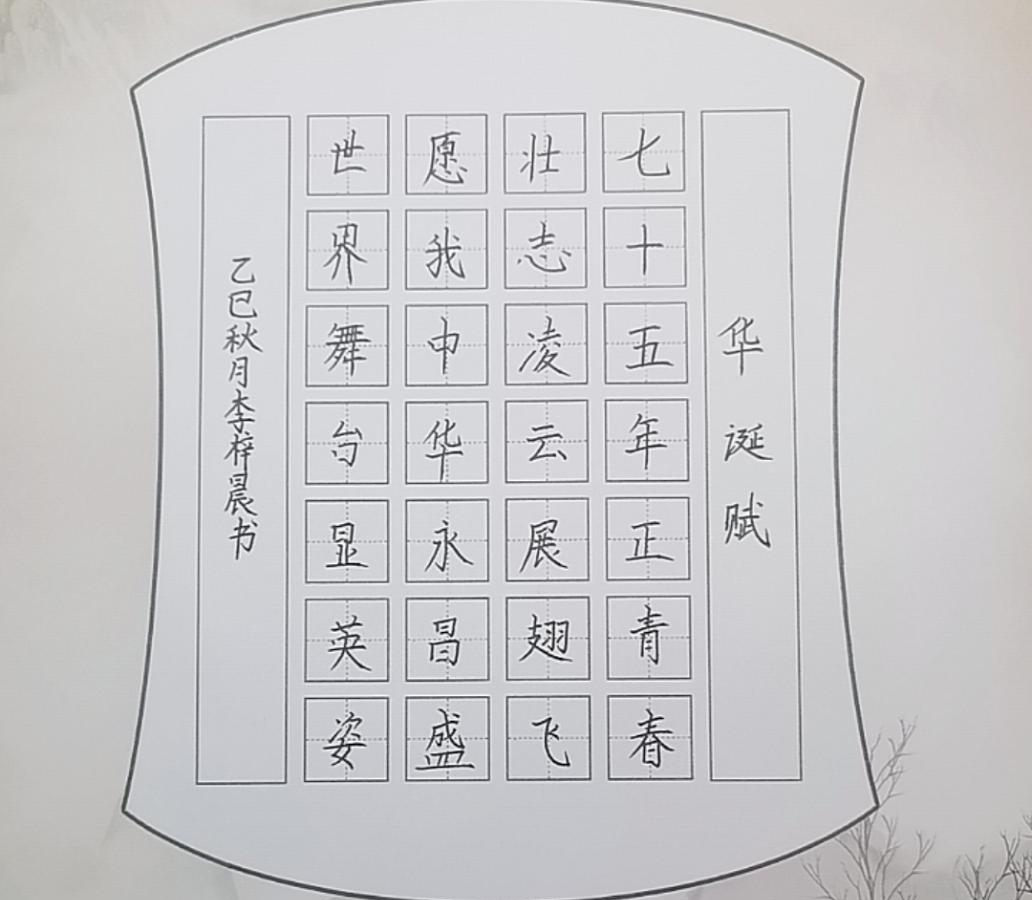 华诞赋
七十五年正青春
壮志凌云展翅飞
愿我中华永昌盛
世界舞台显英姿
乙巳秋月李梓晨书